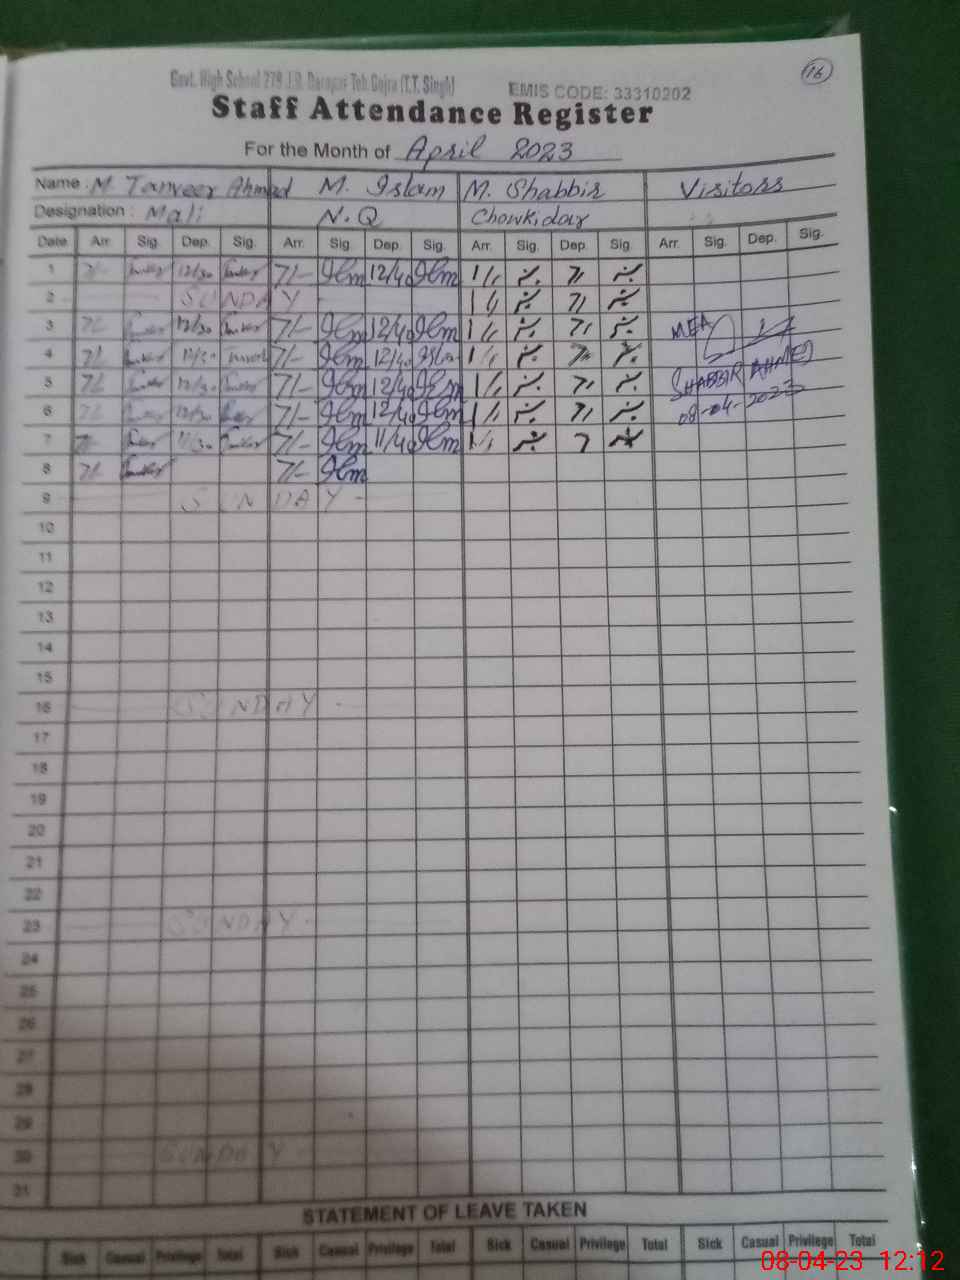 16
Govt. High School 279 J.B. Darapur Teh Gojra (T.T. Singh)
EMIS CODE: 33310202
Staff Attendance Register
For the Month of April 2023
Name : M Tanveer Ahmad M. Islam M. Shabbir Visitors
Designation : Mali N.Q Chowkidar
Date Arr. Sig. Dep. Sig. Arr. Sig. Dep. Sig. Arr. Sig. Dep. Sig. Arr. Sig. Dep. Sig.
1 7/- 12/30 7/- 12/40 1/1 7/
2 SUNDAY 1/1 7/
3 7/- 12/30 7/- 12/40 1/1 7/ MEA
4 7/- 12/30 7/- 12/40 1/1
5 7/- 12/30 7/- 12/40 1/1 7/ SHABBIR AHMED
6 7/- 12/30 7/- 12/40 1/1 7/ 08-04-2023
7 7/- 11/30 7/- 11/40 1/1 7
8 7/- 7/-
9 SUNDAY -
10
11
12
13
14
15
16 SUNDAY -
17
18
19
20
21
22
23 SUNDAY -
24
25
26
27
28
29
30 SUNDAY -
31
STATEMENT OF LEAVE TAKEN
Sick Casual Privilege Total Sick Casual Privilege Total Sick Casual Privilege Total Sick Casual Privilege Total
08-04-23 12:12